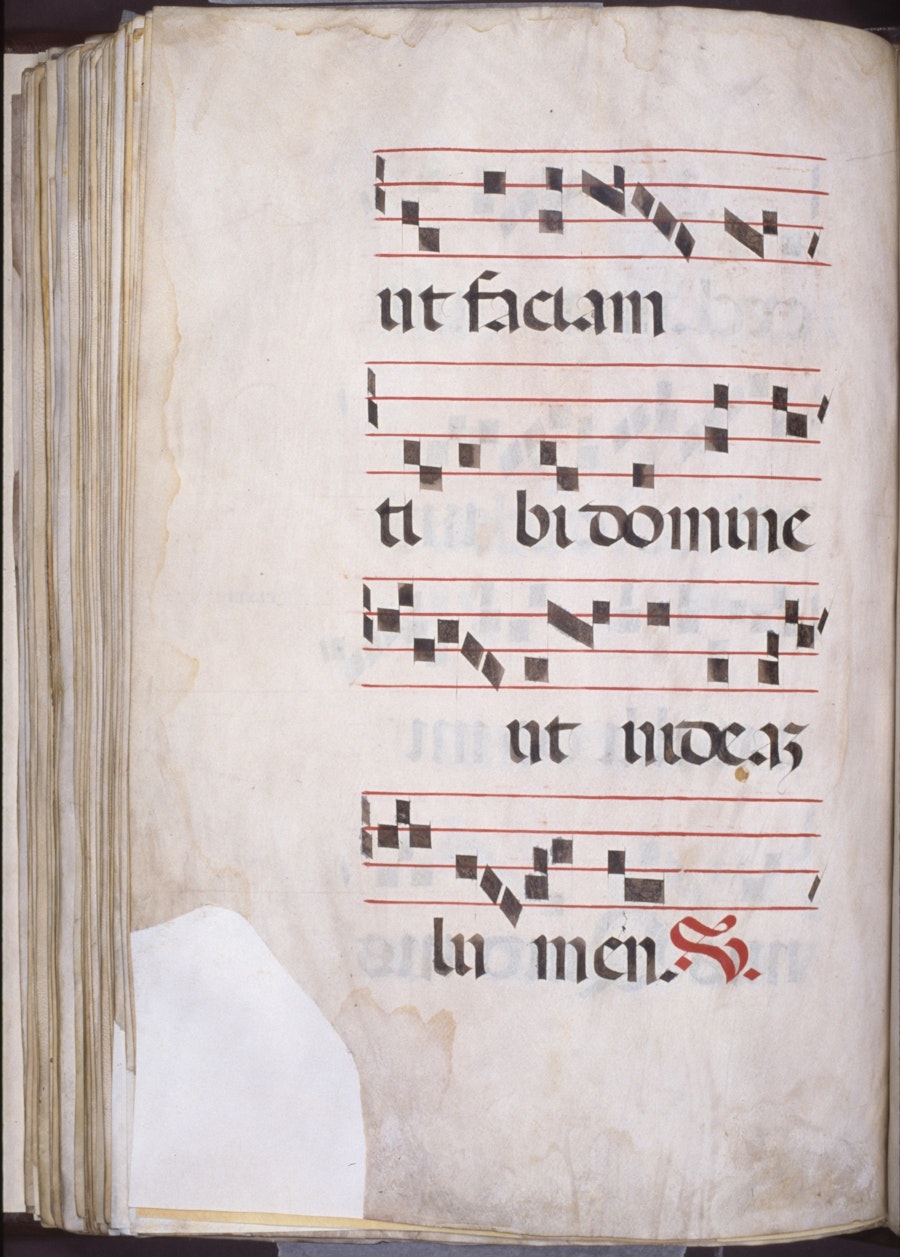 ut faciam
ti bi domine
ut uideaz
lu men.